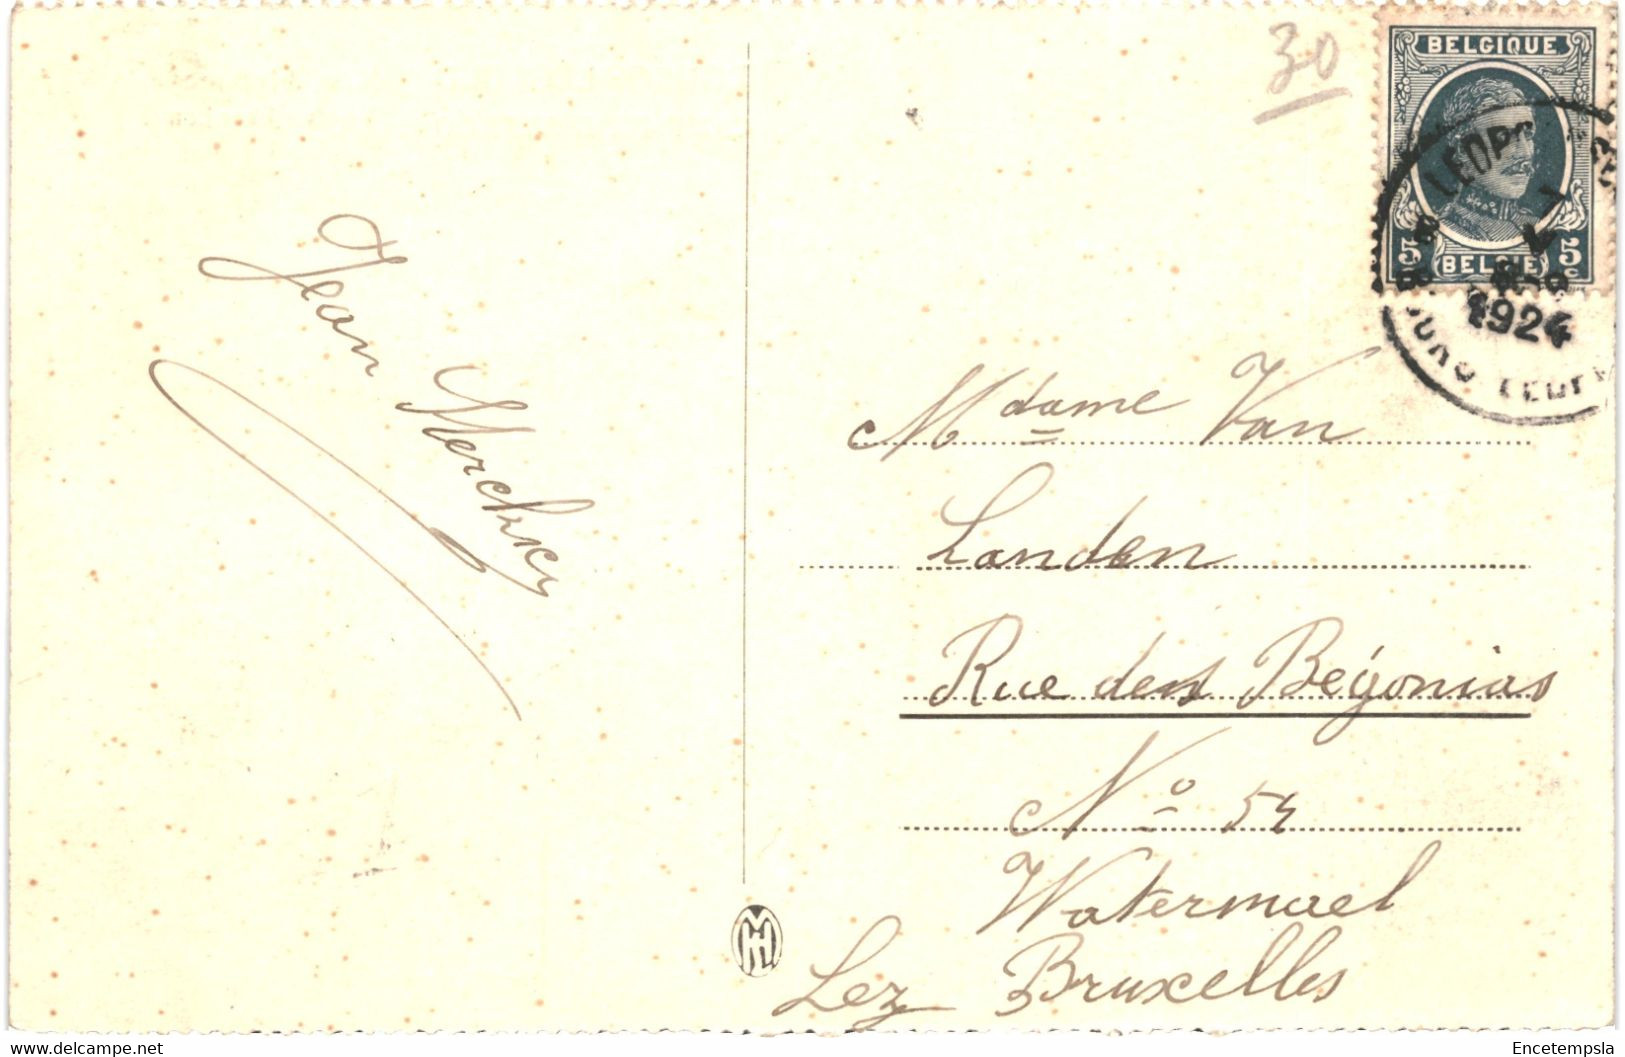 30
BELGIQUE
5 BELGIË 5
1924
Jean
Mdame Van
Landen
Rue des Bégonias
No 54
Watermael
Lez Bruxelles
www.delcampe.net
Encetempsla